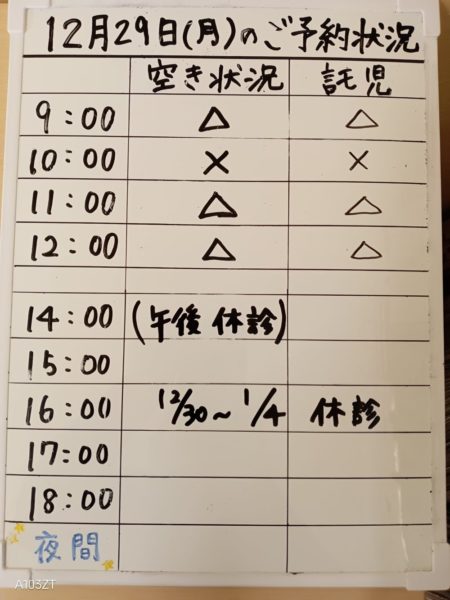 12月29日(月)のご予約状況
空き状況 託児
9:00 △ △
10:00 × ×
11:00 △ △
12:00 △ △
14:00 (午後 休診)
15:00
16:00 12/30~1/4 休診
17:00
18:00
夜間
A103ZT